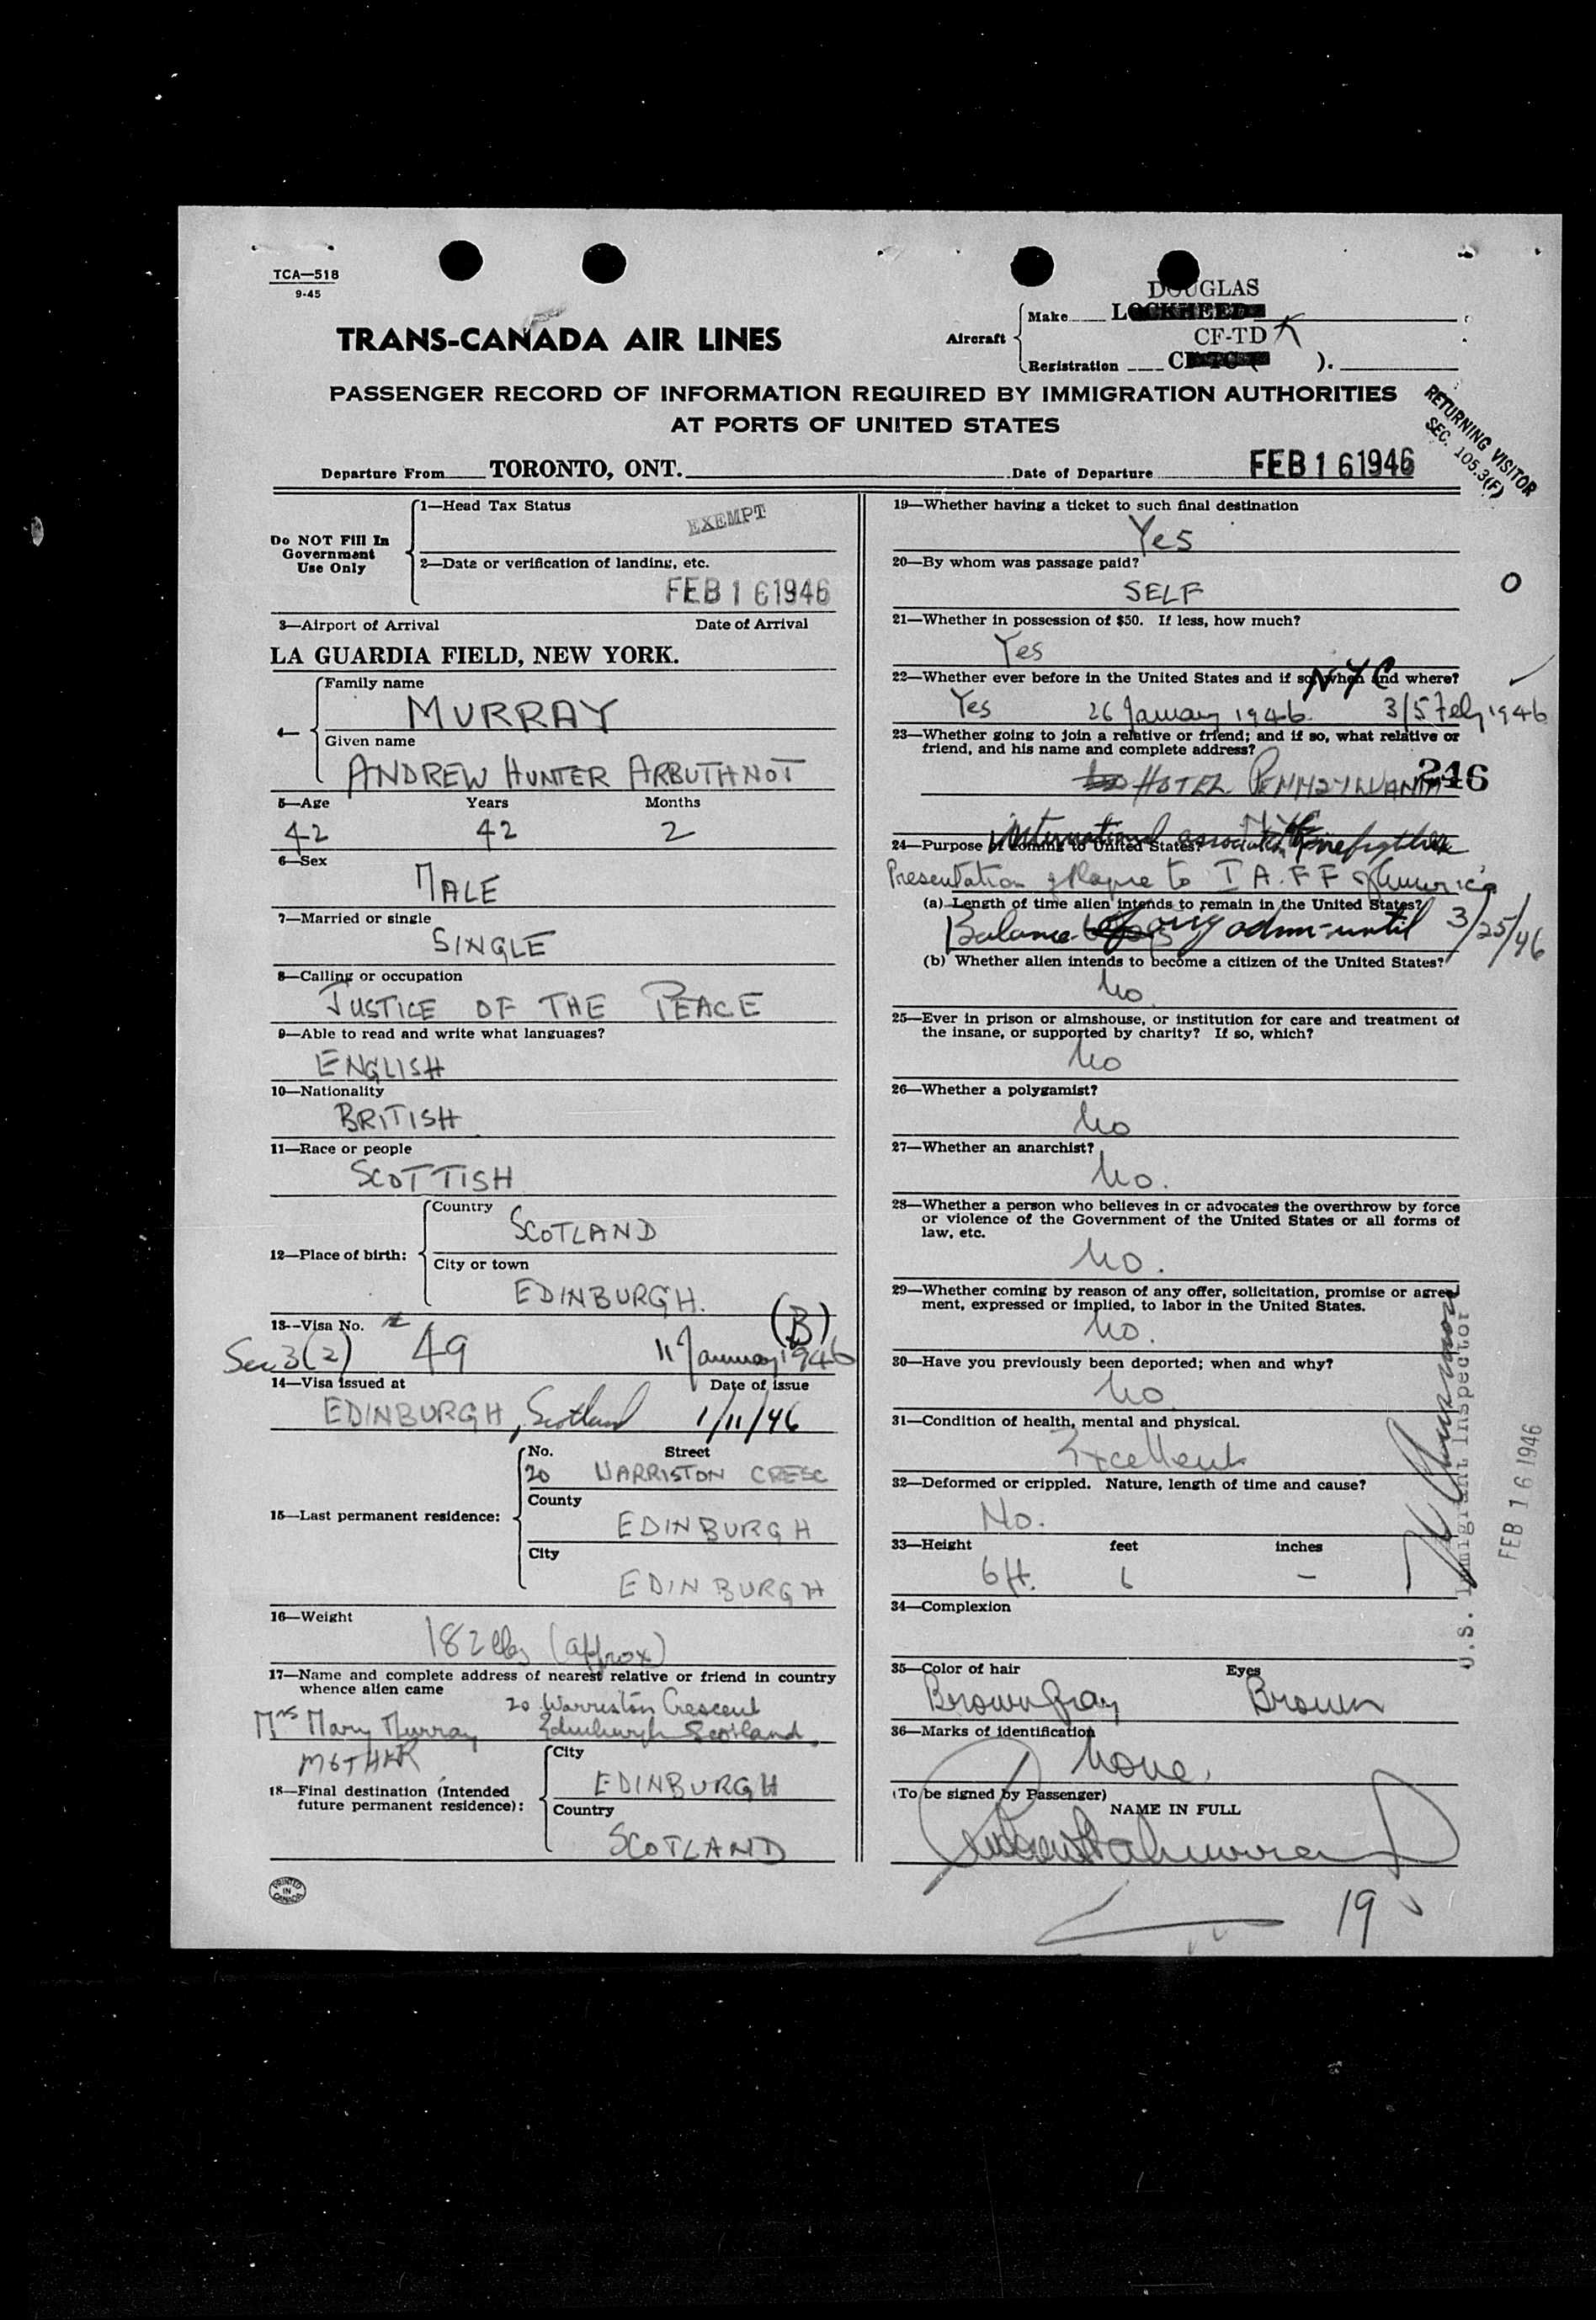 TCA—518
9-45
TRANS-CANADA AIR LINES
Aircraft
Make
DOUGLAS
LOCKHEED
Registration
CF-TDK
PASSENGER RECORD OF INFORMATION REQUIRED BY IMMIGRATION AUTHORITIES
AT PORTS OF UNITED STATES
RETURNING VISITOR
SEC. 105.3(F)
Departure From TORONTO, ONT. Date of Departure FEB 16 1946
Do NOT Fill In
Government
Use Only
1—Head Tax Status
EXEMPT
2—Date or verification of landing, etc.
FEB 16 1946
3—Airport of Arrival Date of Arrival
LA GUARDIA FIELD, NEW YORK.
4—
Family name
MURRAY
Given name
ANDREW HUNTER ARBUTHNOT
5—Age Years Months
42 42 2
6—Sex
MALE
7—Married or single
SINGLE
8—Calling or occupation
JUSTICE OF THE PEACE
9—Able to read and write what languages?
ENGLISH
10—Nationality
BRITISH
11—Race or people
SCOTTISH
12—Place of birth:
Country
SCOTLAND
City or town
EDINBURGH.
13—Visa No. (B)
Sec 3(2) 49 11 January 1946
14—Visa issued at Date of issue
EDINBURGH, Scotland 1/11/46
15—Last permanent residence:
No. Street
20 WARRISTON CRESC
County
EDINBURGH
City
EDINBURGH
16—Weight
182 lbs (approx)
17—Name and complete address of nearest relative or friend in country
whence alien came
20 Warriston Crescent
Mrs Mary Murray Edinburgh Scotland.
MOTHER
18—Final destination (Intended
future permanent residence):
City
EDINBURGH
Country
SCOTLAND
PRINTED
IN
CANADA
19—Whether having a ticket to such final destination
Yes
20—By whom was passage paid?
SELF
O
21—Whether in possession of $50. If less, how much?
Yes
22—Whether ever before in the United States and if so, when and where?
NYC
Yes 26 January 1946. 3/5 Feby 1946
23—Whether going to join a relative or friend; and if so, what relative or
friend, and his name and complete address?
HOTEL PENNSYLVANIA
246
24—Purpose in coming to United States?
International association of firefighters
Presentation of Plaque to I A. F F of America
(a) Length of time alien intends to remain in the United States?
Balance of orig adm-until 3/25/46
(b) Whether alien intends to become a citizen of the United States?
No.
25—Ever in prison or almshouse, or institution for care and treatment of
the insane, or supported by charity? If so, which?
No
26—Whether a polygamist?
No
27—Whether an anarchist?
No.
28—Whether a person who believes in or advocates the overthrow by force
or violence of the Government of the United States or all forms of
law, etc.
No.
29—Whether coming by reason of any offer, solicitation, promise or agree-
ment, expressed or implied, to labor in the United States.
No.
30—Have you previously been deported; when and why?
No
31—Condition of health, mental and physical.
Excellent
32—Deformed or crippled. Nature, length of time and cause?
No.
33—Height feet inches
6 ft. 6 —
34—Complexion
35—Color of hair Eyes
Brown Gray Brown
36—Marks of identification
None.
(To be signed by Passenger)
NAME IN FULL
U.S. Immigrant Inspector
FEB 16 1946
19